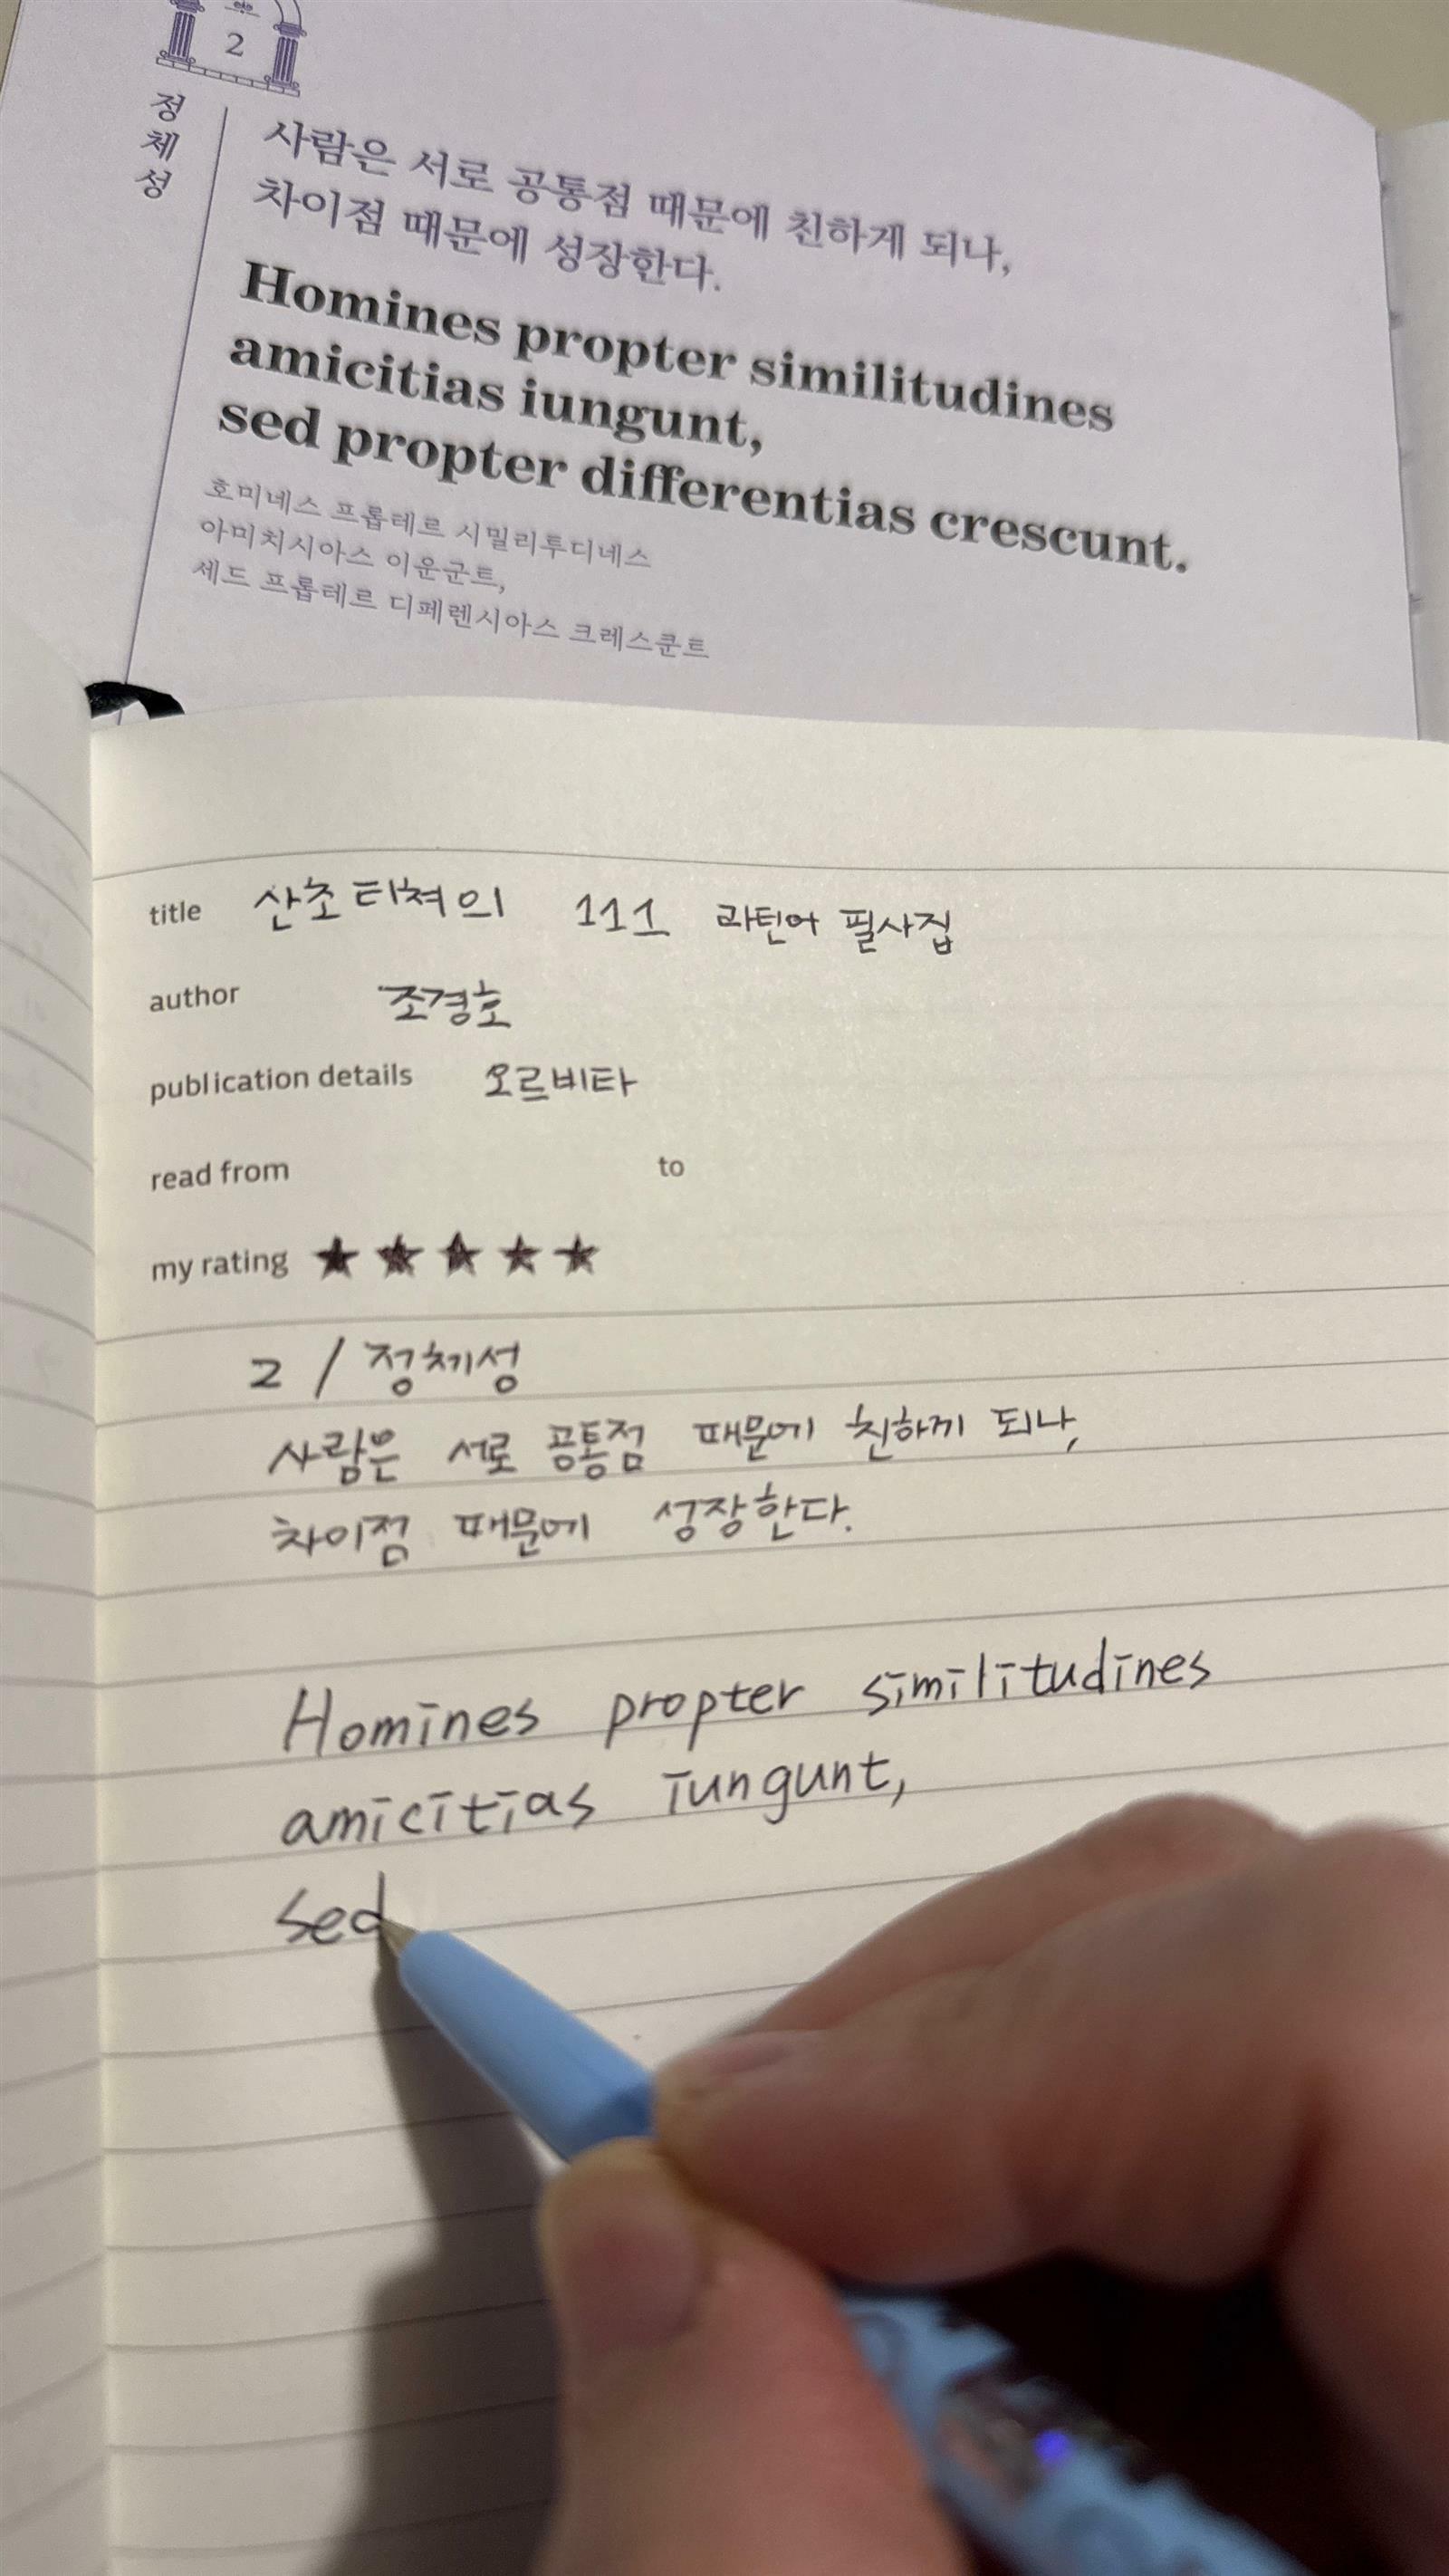 2
정체성
사람은 서로 공통점 때문에 친하게 되나,
차이점 때문에 성장한다.
Homines propter similitudines
amicitias iungunt,
sed propter differentias crescunt.
호미네스 프롭테르 시밀리투디네스
아미치시아스 이운군트,
세드 프롭테르 디페렌시아스 크레스쿤트
title 산초티쳐의 111 라틴어 필사집
author 조경호
publication details 오르비타
read from to
my rating ★★★★★
2 / 정체성
사람은 서로 공통점 때문에 친하게 되나,
차이점 때문에 성장한다.
Homines propter similitudines
amicitias iungunt,
sed